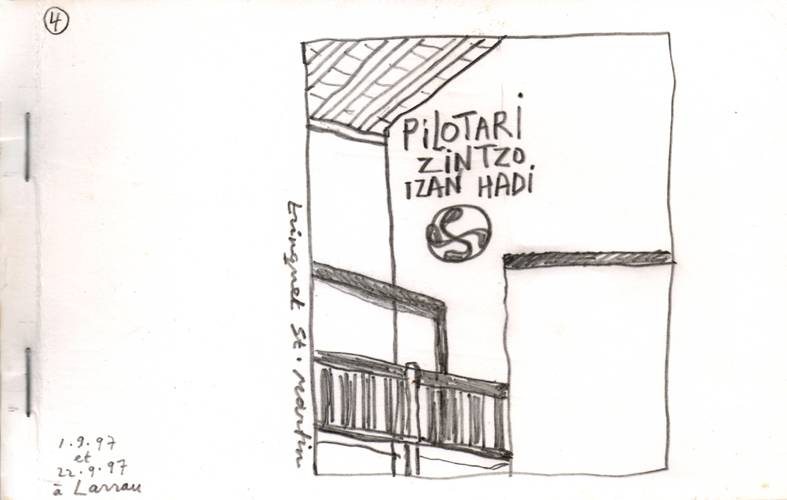 4
PiLOTARi
ZiNTZO
IZAN HADi
trinquet St. Martin
1.9.97
et
22.9.97
à Larrau